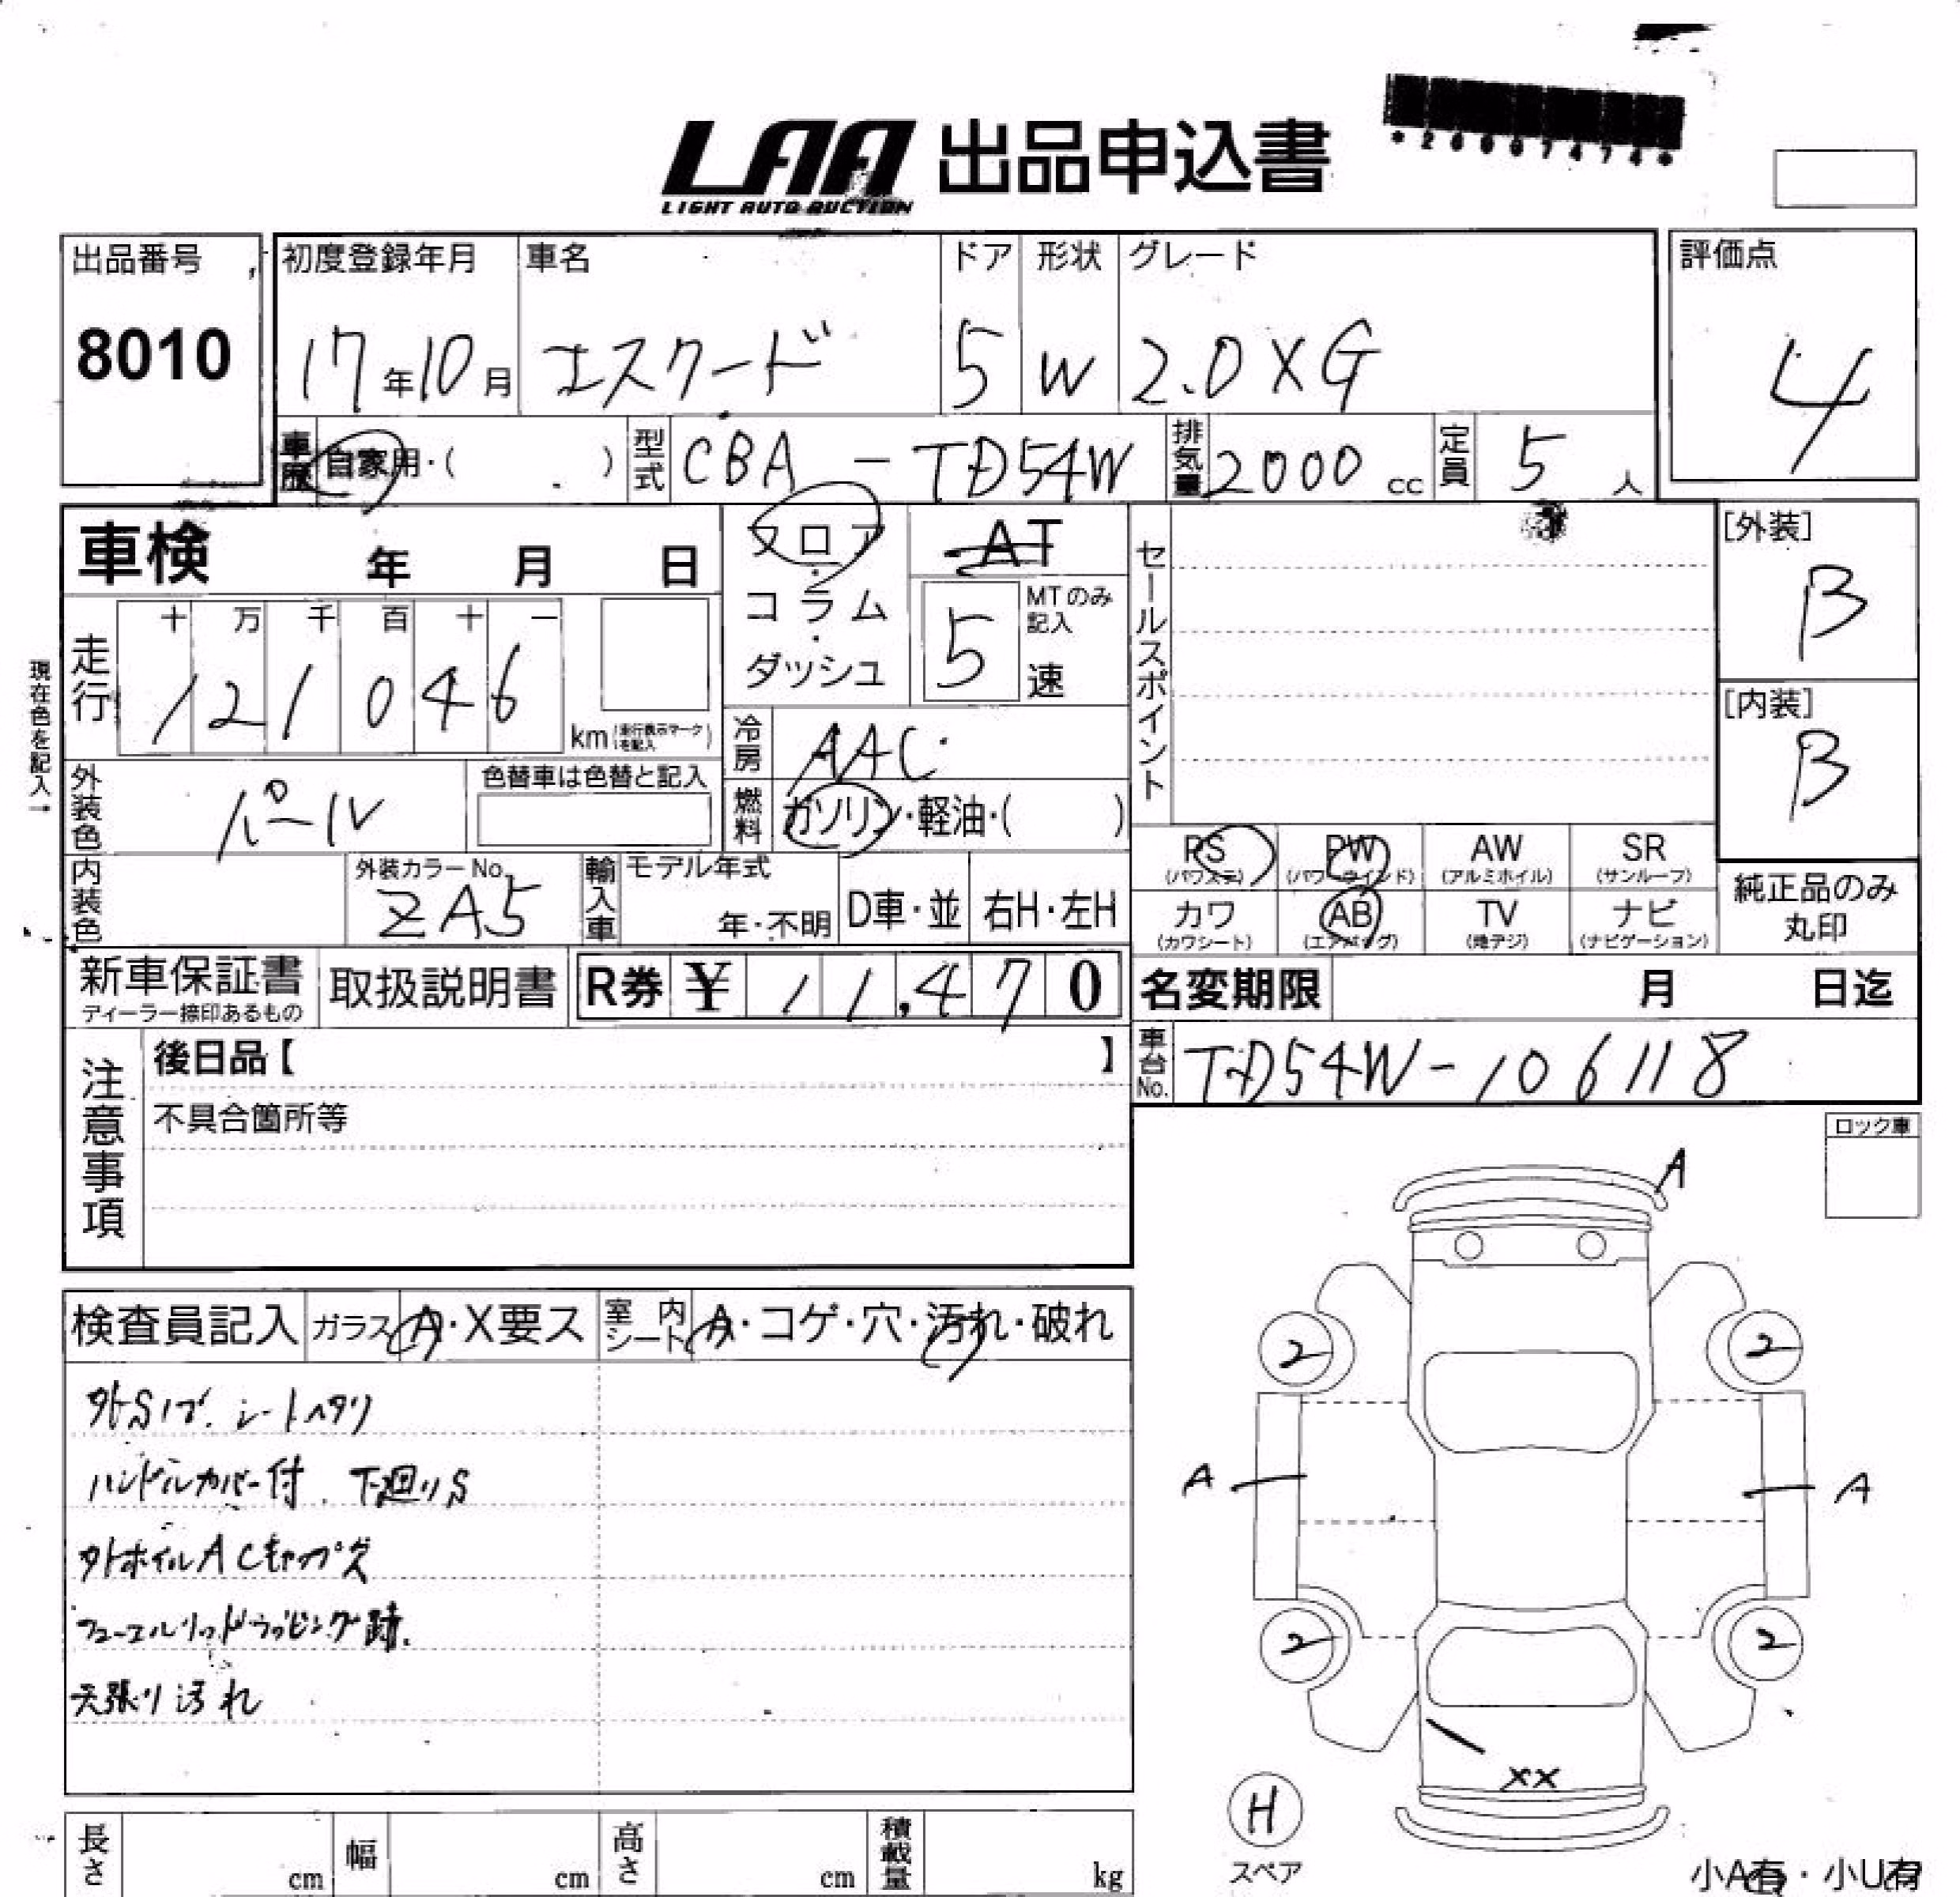 *2600747​4*
LAA 出品申込書
LIGHT AUTO AUCTION
出品番号 初度登録年月 車名 ドア 形状 グレード 評価点
8010 17年10月 エスクード 5 W 2.0XG 4
車歴 自家用・( ) 型式 CBA-TD54W 排気量 2000cc 定員 5人
車検 年 月 日 フロア・コラム・ダッシュ AT セールスポイント [外装] B
MTのみ記入 5速
現在色を記入→
走行 十 万 千 百 十 一
121046 km (走行表示マークを記入) [内装] B
冷房 AAC
外装色 パール 色替車は色替と記入 燃料 ガソリン・軽油・( )
PS (パワステ) PW (パワーウインド) AW (アルミホイル) SR (サンルーフ)
内装色 外装カラーNo. ZA5 輸入車 モデル年式 年・不明 D車・並 右H・左H
カワ (カワシート) AB (エアバッグ) TV (地デジ) ナビ (ナビゲーション) 純正品のみ丸印
新車保証書 ディーラー捺印あるもの 取扱説明書 R券 ¥ 11,470 名変期限 月 日迄
注意事項 後日品【 】 車台No. TD54W-106118
不具合箇所等
ロック車
A
検査員記入 ガラス A・X要ス 室内シート A・コゲ・穴・汚れ・破れ
2 2
外Sイブ. シートヘタリ
ハンドルカバー付. 下廻りS
A A
外ホイルA Cキャップズ
フューエルリッドラッピング跡.
2 2
天張り汚れ
XX
H
スペア
長さ cm 幅 cm 高さ cm 積載量 kg
小A有・小U有